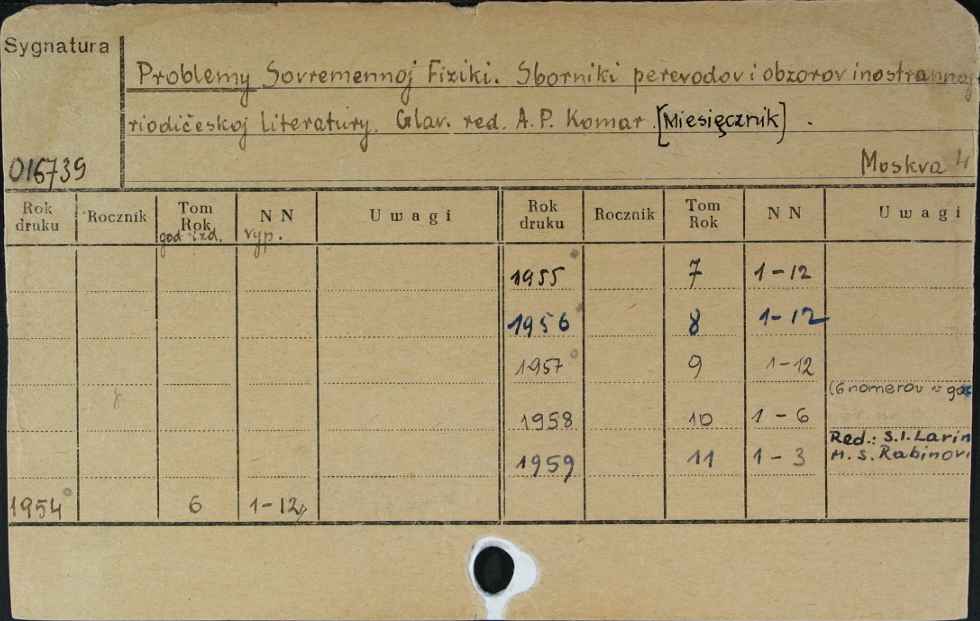 Sygnatura
Problemy Sovremennoj Fiziki. Sborniki perevodov i obzorov inostrannoj
riodičeskoj literatury. Glav. red. A.P. Komar. [Miesięcznik].
016739
Moskva
Rok druku Rocznik Tom Rok god izd. NN vyp. Uwagi Rok druku Rocznik Tom Rok NN Uwagi
1955 7 1-12
1956 8 1-12
1957 9 1-12
(6 nomerov v god
1958 10 1-6
Red.: S.I. Larin
1959 11 1-3 M.S. Rabinovi
1954 6 1-12